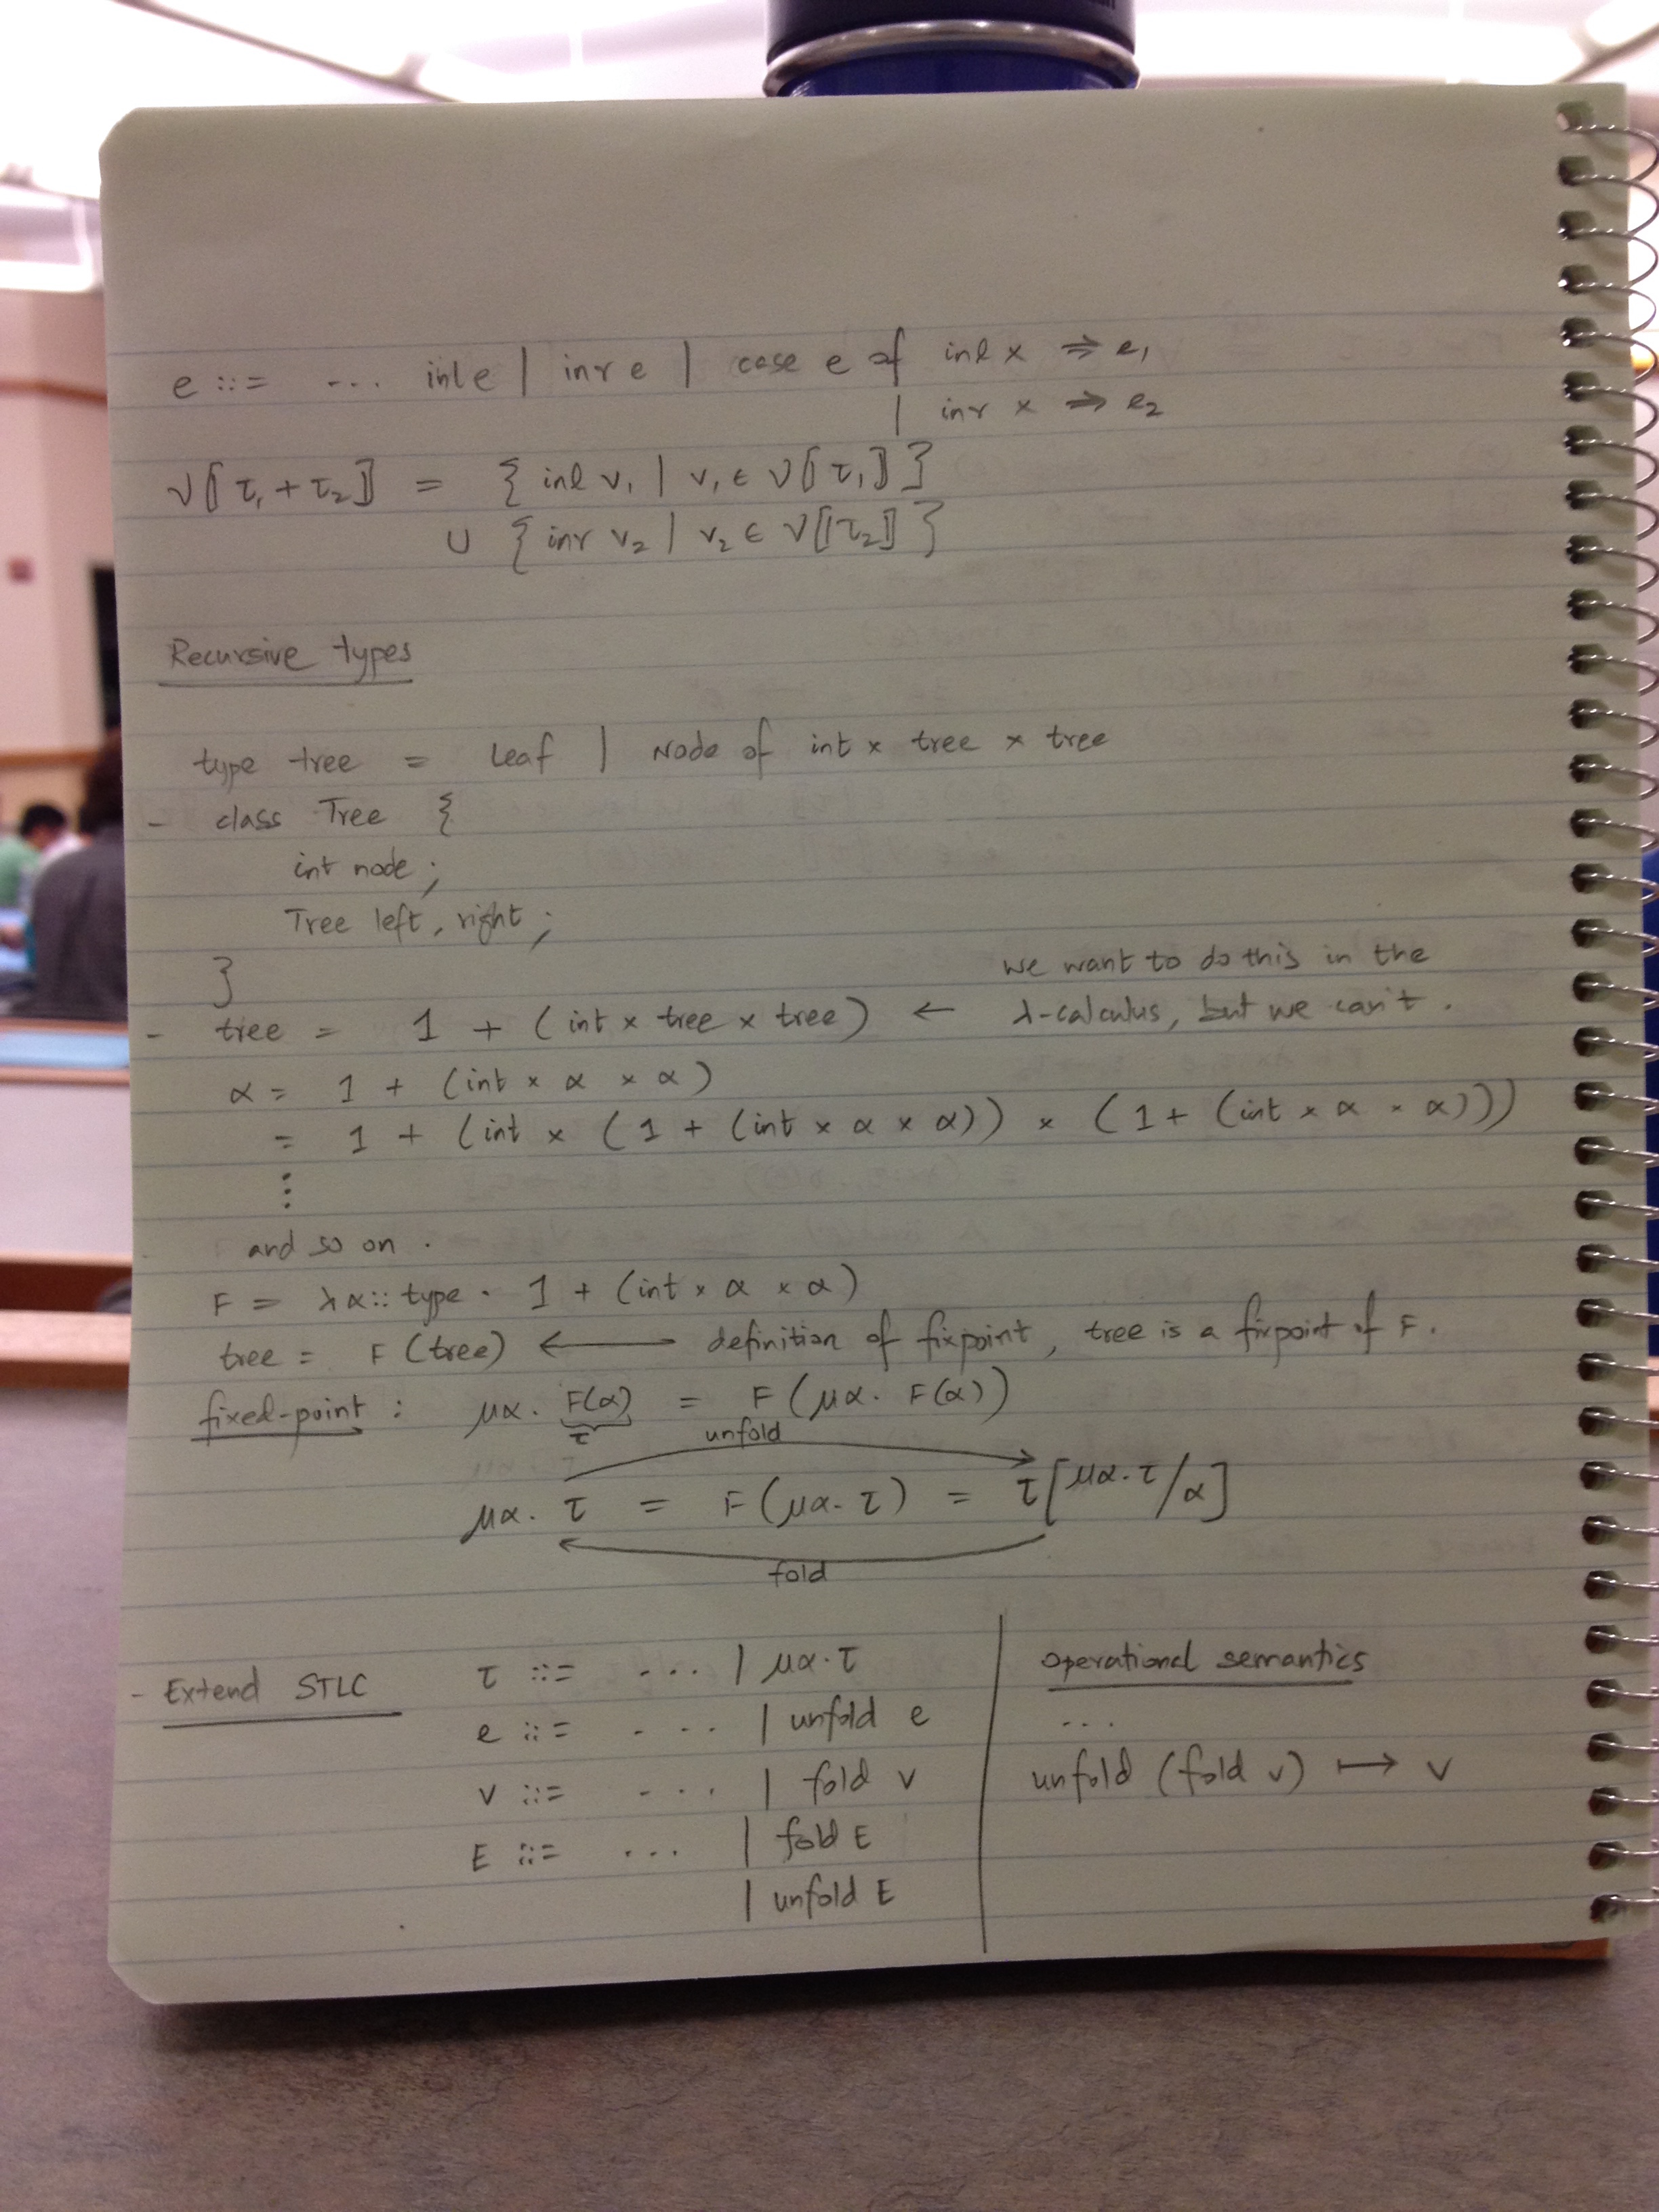 e ::= ... inl e | inr e | case e of inl x ⇒ e₁
| inr x ⇒ e₂
𝒱⟦τ₁ + τ₂⟧ = { inl v₁ | v₁ ∈ 𝒱⟦τ₁⟧ }
∪ { inr v₂ | v₂ ∈ 𝒱⟦τ₂⟧ }
Recursive types
type tree = Leaf | Node of int × tree × tree
- class Tree {
int node ;
Tree left, right ;
}
we want to do this in the
- tree = 1 + (int × tree × tree) ← λ-calculus, but we can't .
α = 1 + (int × α × α)
= 1 + (int × (1 + (int × α × α)) × (1 + (int × α × α)))
⋮
and so on .
F = λα:: type . 1 + (int × α × α)
tree = F (tree) ⟵ definition of fixpoint, tree is a fixpoint of F.
fixed-point : μα. F(α) = F (μα. F(α))
τ unfold
μα. τ = F (μα. τ) = τ[μα. τ/α]
fold
- Extend STLC τ ::= ... | μα. τ operational semantics
e ::= ... | unfold e ...
v ::= ... | fold v unfold (fold v) ⟼ v
E ::= ... | fold E
| unfold E